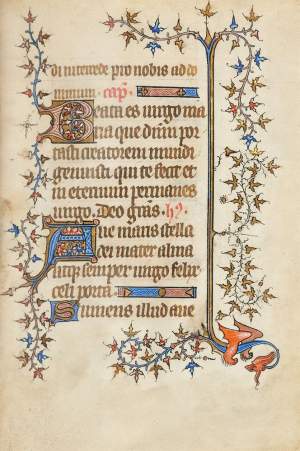 di intercede pro nobis ad do
minum. cap.
Beata es virgo ma
ria que dnm por
tasti creatorem mundi
genuisti qui te fecit et
in eternum permanes
virgo. Deo gras. hy.
Aue maris stella
dei mater alma
atq; semper uirgo felix
celi porta
Sumens illud aue